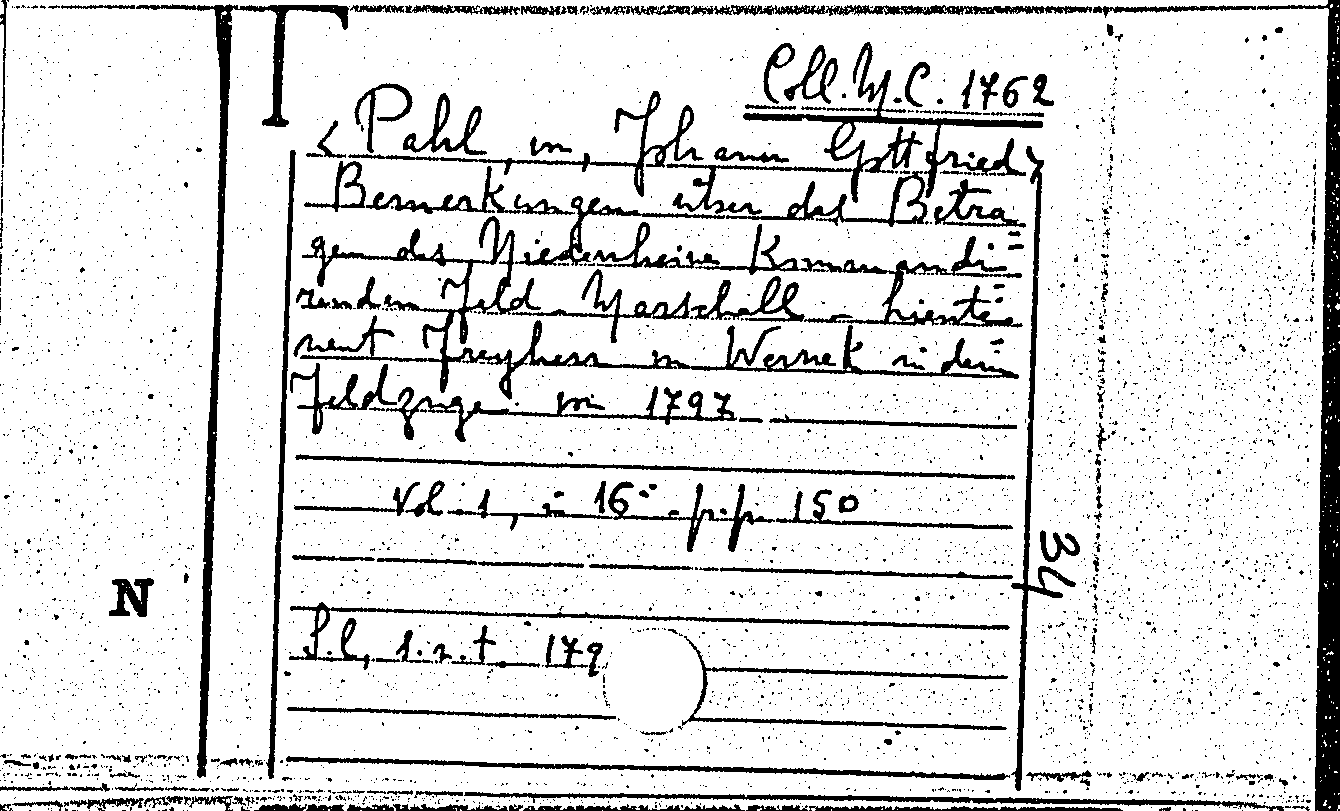 T
Coll. M. C. 1762
< Pahl, von, Johann Gottfried >
Bemerkungen über das Betra
gen des Niederrhein Kommandi=
renden Feld-Marschall-Lieute=
nent Freyherr von Wernek in dem
Feldzuge von 1797
Vol. 1, in 16° - p.p. 150
34
N
S.l, s.n.t. 179